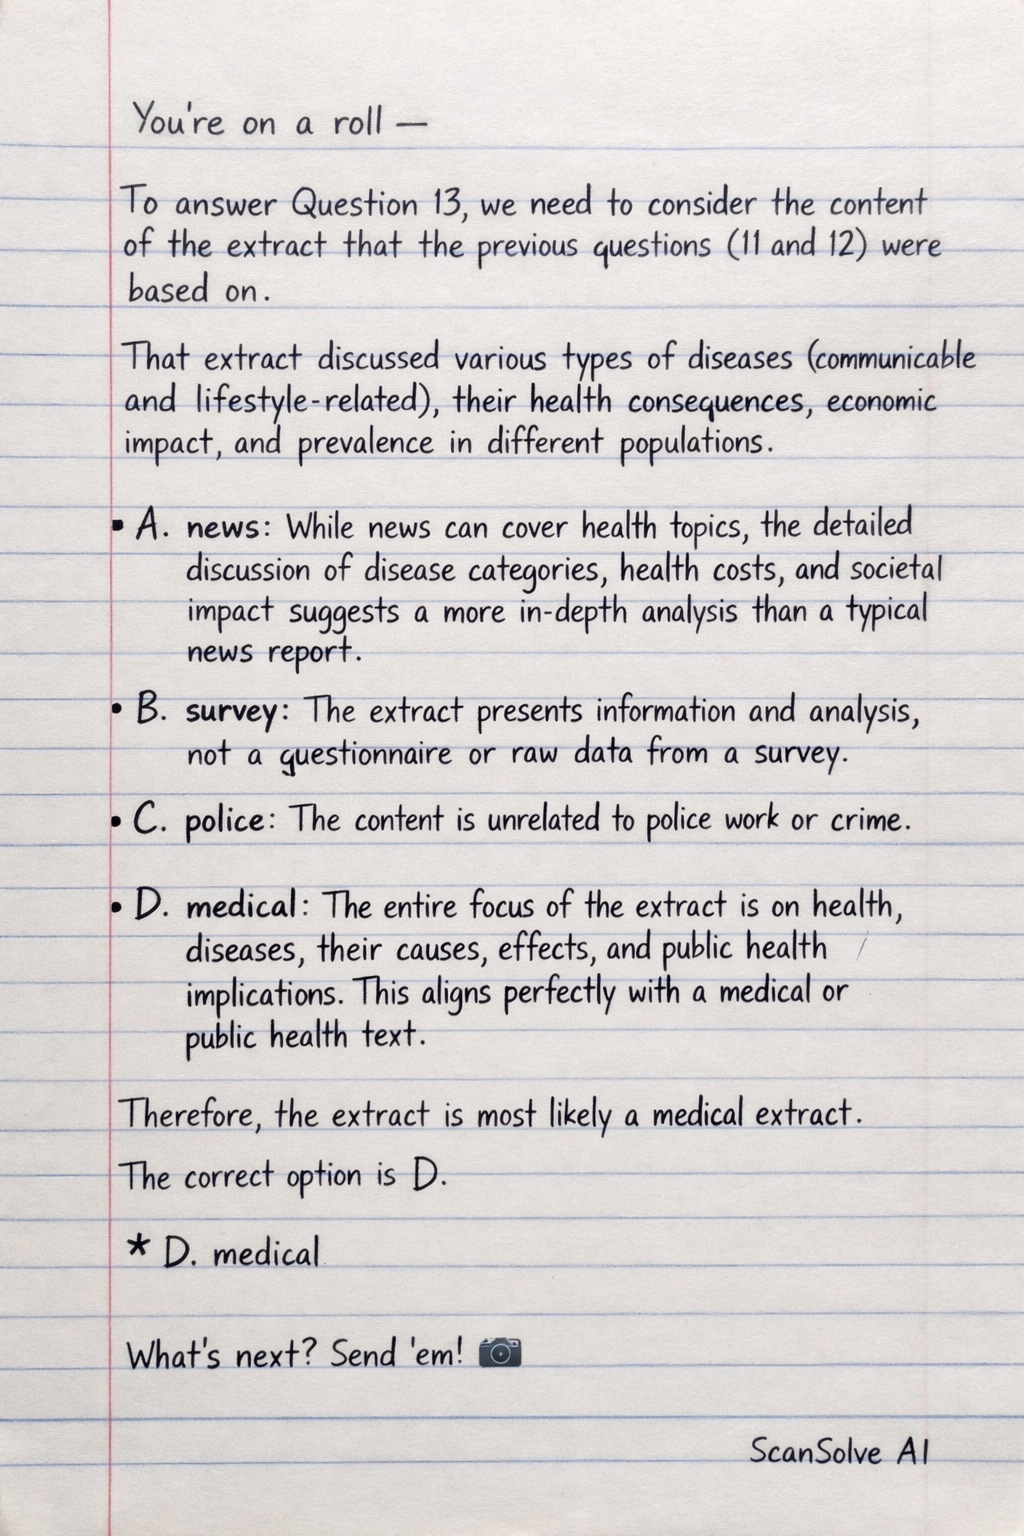 You're on a roll —
To answer Question 13, we need to consider the content
of the extract that the previous questions (11 and 12) were
based on.
That extract discussed various types of diseases (communicable
and lifestyle-related), their health consequences, economic
impact, and prevalence in different populations.
• A. news: While news can cover health topics, the detailed
discussion of disease categories, health costs, and societal
impact suggests a more in-depth analysis than a typical
news report.
• B. survey: The extract presents information and analysis,
not a questionnaire or raw data from a survey.
• C. police: The content is unrelated to police work or crime.
• D. medical: The entire focus of the extract is on health,
diseases, their causes, effects, and public health
implications. This aligns perfectly with a medical or
public health text.
Therefore, the extract is most likely a medical extract.
The correct option is D.
* D. medical
What's next? Send 'em! 📷
ScanSolve AI